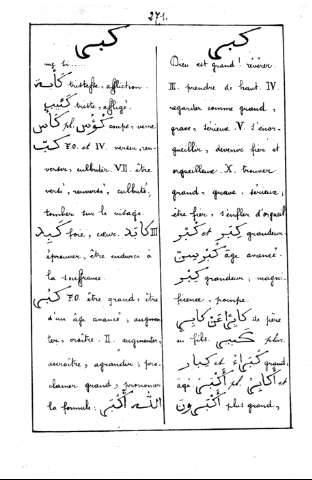 271.
كبى
كبى
كآبة tristesse, affliction.
كئيب triste, affligé.
كأس pl. كؤس coupe, verre
كبّ F.O. et IV. verser, ren-
verser, culbuter. VII. être
versé, renversé, culbuté,
tomber sur le visage.
كبد foie, cœur. كابد III
éprouver, être endurci à
la souffrance.
كبر F.O. être grand, être
d'un âge avancé, augmen-
ter, croître. II. augmenter,
accroître, agrandir; pro-
clamer grand, prononcer
la formule: الله أكبر
Dieu est grand! révérer.
III. prendre de haut. IV.
regarder comme grand,
grave, sérieux. V. s'enor-
gueillir, devenir fier et
orgueilleux. X. trouver
grand, grave, sérieux;
être fier, s'enfler d'orgueil.
كبر et كبر grandeur
كبر سنّ âge avancé.
كبر grandeur; magni-
ficence, pompe.
كابرًا عن كابر de père
en fils. كبير plur.
كبراء et كبار grand,
âgé أكبر pl. أكابر et
أكبرون plus grand,